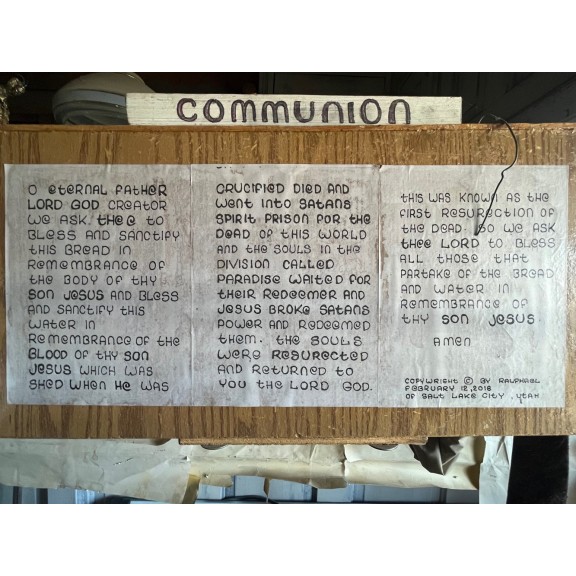 COMMUNION
O ETERNAL FATHER
LORD GOD CREATOR
WE ASK THEE TO
BLESS AND SANCTIFY
THIS BREAD IN
REMEMBRANCE OF
THE BODY OF THY
SON JESUS AND BLESS
AND SANCTIFY THIS
WATER IN
REMEMBRANCE OF THE
BLOOD OF THY SON
JESUS WHICH WAS
SHED WHEN HE WAS
CRUCIFIED DIED AND
WENT INTO SATANS
SPIRIT PRISON FOR THE
DEAD OF THIS WORLD
AND THE SOULS IN THE
DIVISION CALLED
PARADISE WAITED FOR
THEIR REDEEMER AND
JESUS BROKE SATANS
POWER AND REDEEMED
THEM. THE SOULS
WERE RESURECTED
AND RETURNED TO
YOU THE LORD GOD.
THIS WAS KNOWN AS THE
FIRST RESURECTION OF
THE DEAD. SO WE ASK
THEE LORD TO BLESS
ALL THOSE THAT
PARTAKE OF THE BREAD
AND WATER IN
REMEMBRANCE OF
THY SON JESUS.
AMEN
COPYWRIGHT © BY RAUPHAEL
FEBRUARY 12, 2018
OF SALT LAKE CITY, UTAH